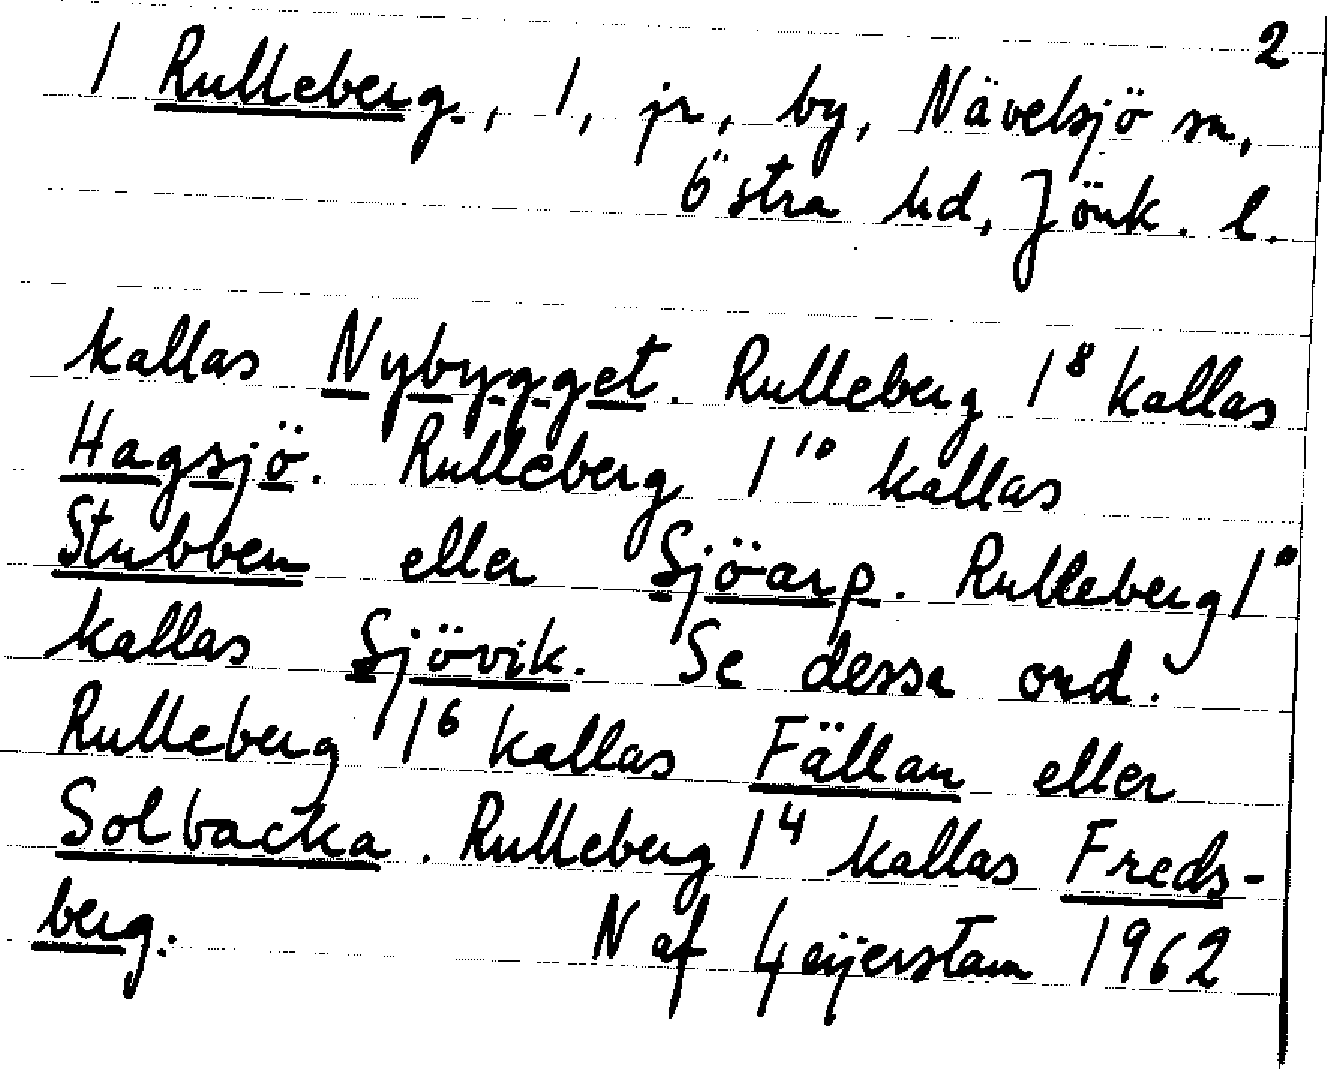 2
1 Rulleberg, 1, jr, by, Nävelsjö sn,
Östra hd, Jönk. l.
kallas Nybygget. Rulleberg 1⁸ kallas
Hagsjö. Rulleberg 1¹⁰ kallas
Stubben eller Sjöarp. Rulleberg
kallas Sjövik. Se dessa ord.
Rulleberg 1⁶ kallas Fällan eller
Solbacka. Rulleberg 1⁴ kallas Freds-
berg.
N af Geijerstam 1962